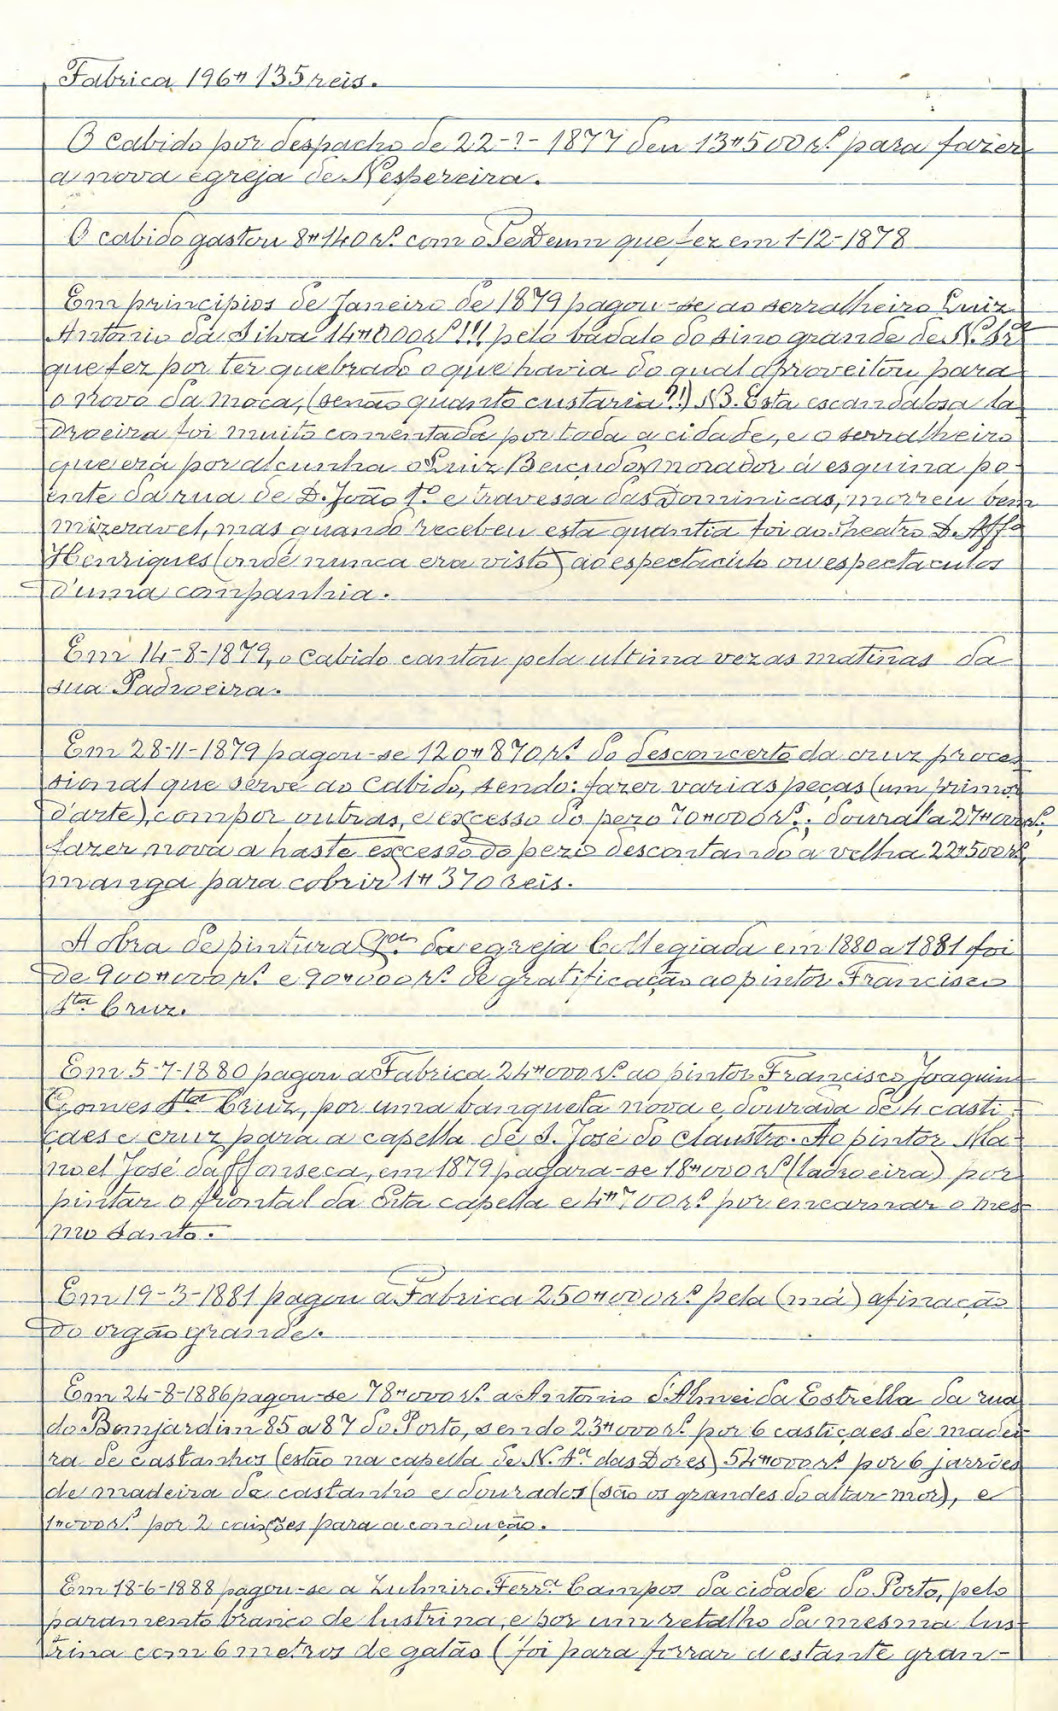 Fabrica 196# 135 reis.
O Cabido por despacho de 22-?-1877 deu 13#500 rs. para fazer
a nova egreja de Nespereira.
O cabido gastou 8#140 rs. com o Te Deum que fez em 1-12-1878
Em principios de Janeiro de 1879 pagou-se ao serralheiro Luiz
Antonio da Silva 14#000 rs!!! pelo badalo do sino grande de N. Sra
que fez por ter quebrado o que havia do qual aproveitou para
o novo da moca, (senão quanto custaria?!) NB. Esta escandalosa la-
droeira foi muito comentada por toda a cidade, e o serralheiro
que era por alcunha o Luiz Beiçudo, morador á esquina po-
ente da rua de D. João 1.º e travessa das Dominicas, morreu bem
mizeravel, mas quando recebeu esta quantia foi ao Theatro D. Affº
Henriques (onde nunca era visto) ao espectaculo ou espectaculos
d'uma companhia.
Em 14-8-1879, o Cabido cantou pela ultima vez as matinas da
sua Padroeira.
Em 28-11-1879 pagou-se 120#870 rs. do desconcerto da cruz proces
sional que serve ao Cabido, sendo: fazer varias peças (um primor
d'arte), compor outras, e excesso do pezo 70#000 rs.; doural'a 27#000 rs.,
fazer nova a haste excesso do pezo descontando a velha 22#500 rs,
manga para cobrir 1#370 reis.
A obra de pintura da egreja Collegiada em 1880 a 1881 foi
de 900#000 rs. e 90#000 rs. de gratificação ao pintor Francisco
Sta Cruz.
Em 5-7-1880 pagou a Fabrica 24#000 rs. ao pintor Francisco Joaquim
Gomes Sta Cruz, por uma banqueta nova e dourada de 4 casti-
çaes e cruz para a capella de S. José do Claustro. Ao pintor Ma-
noel José da ffonseca, em 1879 pagara-se 18#000 rs (ladroeira) por
pintar o frontal da Esta capella e 4#700 rs. por encarnar o mes-
mo santo.
Em 19-3-1881 pagou a Fabrica 250#000 rs. pela (má) afinação
do orgão grande.
Em 24-8-1886 pagou-se 78#000 rs. a Antonio d'Almeida Estrella da rua
do Bomjardim 85 a 87 do Porto, sendo 23#000 rs. por 6 castiçaes de madei-
ra de castanho (estão na capella de N. Sra das Dores) 54#000 rs. por 6 jarrões
de madeira de castanho e dourados (são os grandes do altar-mor), e
1#000 rs. por 2 caixões para a condução.
Em 18-6-1888 pagou-se a Zulmiro Ferra Campos da cidade do Porto, pelo
paramento branco de lustrina, e por um retalho da mesma lus-
trina com 6 metros de galão (foi para forrar a estante gran-